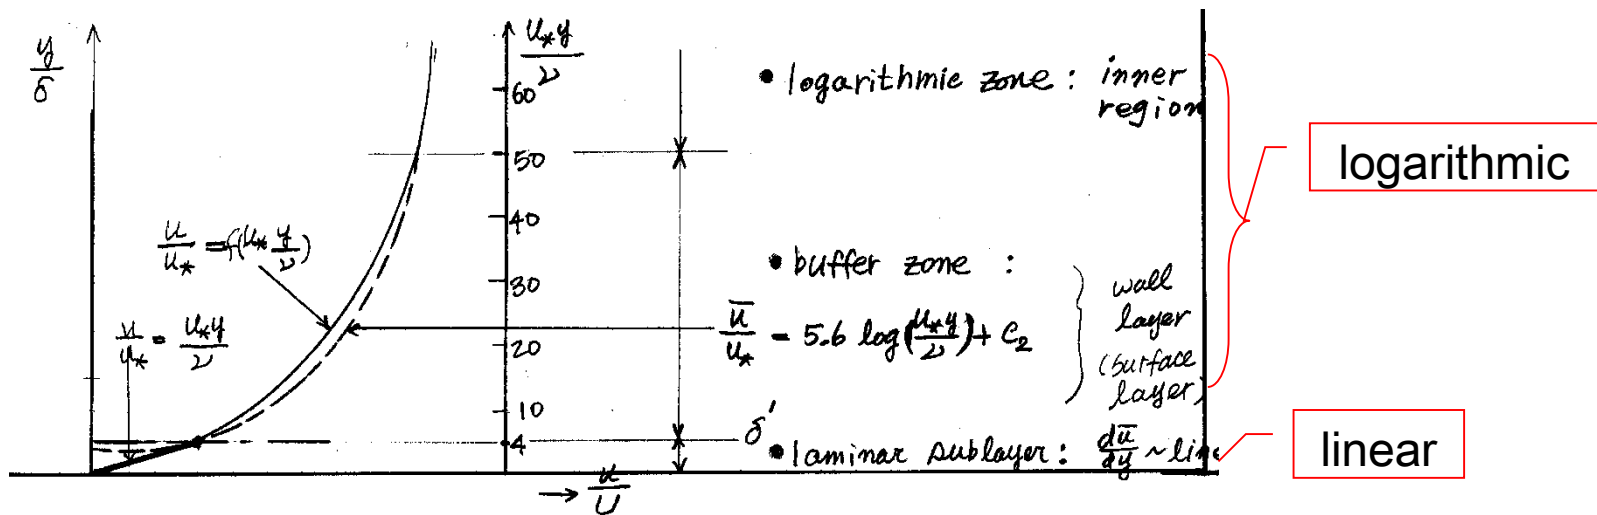 y/δ
u/u* = f(u* y/ν)
u/u* = u*y/ν
u*y/ν
60
50
40
30
20
10
4
→ u/U
• logarithmic zone : inner
region
• buffer zone :
ū/u* = 5.6 log(u*y/ν) + C₂
wall
layer
(surface
layer)
δ'
• laminar sublayer : dū/dy ~ line
logarithmic
linear